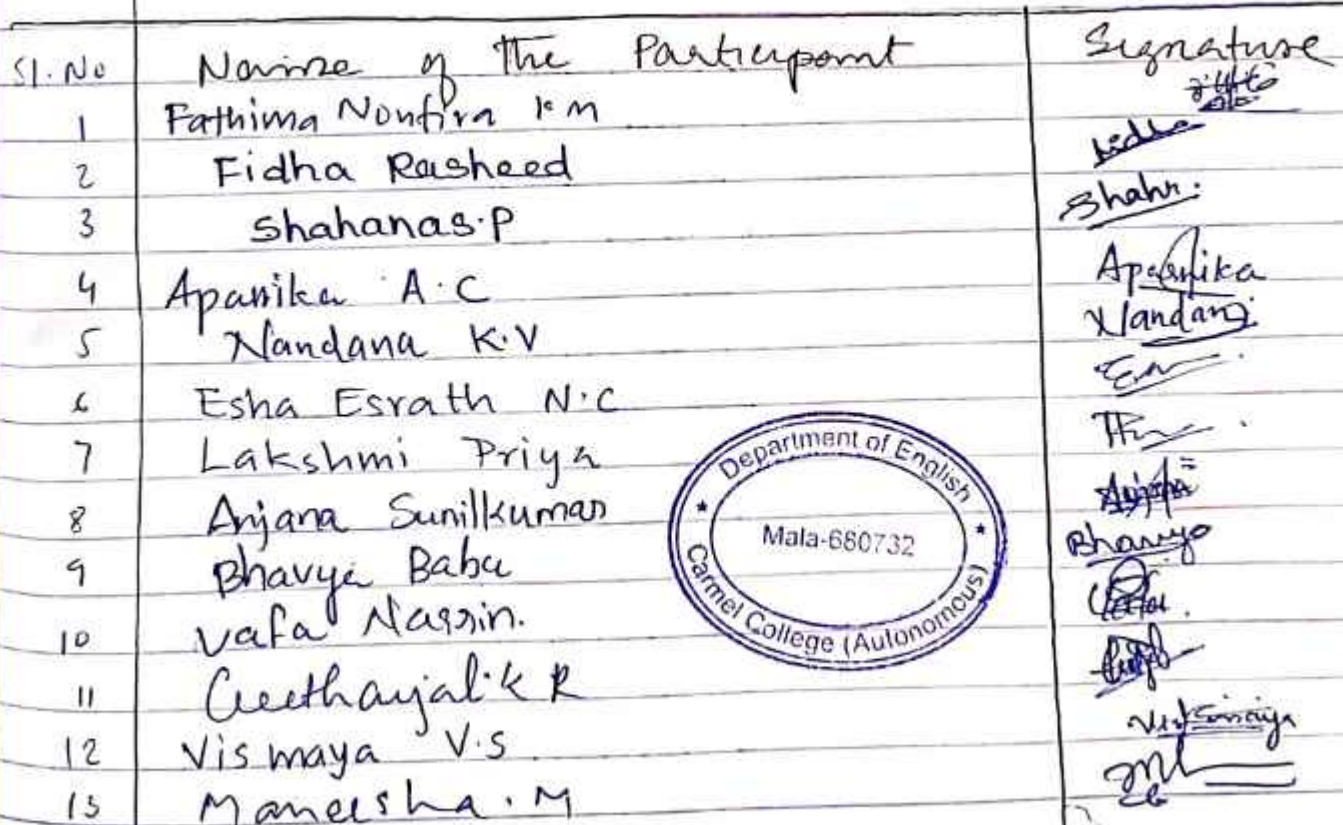 Sl. No Name of the Participant Signature
1 Fathima Noufira K M
2 Fidha Rasheed Fidha
3 Shahanas.P Shahn.
4 Aparnika A.C Aparnika
5 Nandana K.V Nandana
6 Esha Esrath N.C
7 Lakshmi Priya
8 Anjana Sunilkumar Anjana
9 Bhavya Babu Bhavya
10 Vafa Nasrin.
11 Geethanjali K R
12 Vismaya V.S Vismaya
13 Maneesha.M
Department of English
Mala-680732
Carmel College (Autonomous)